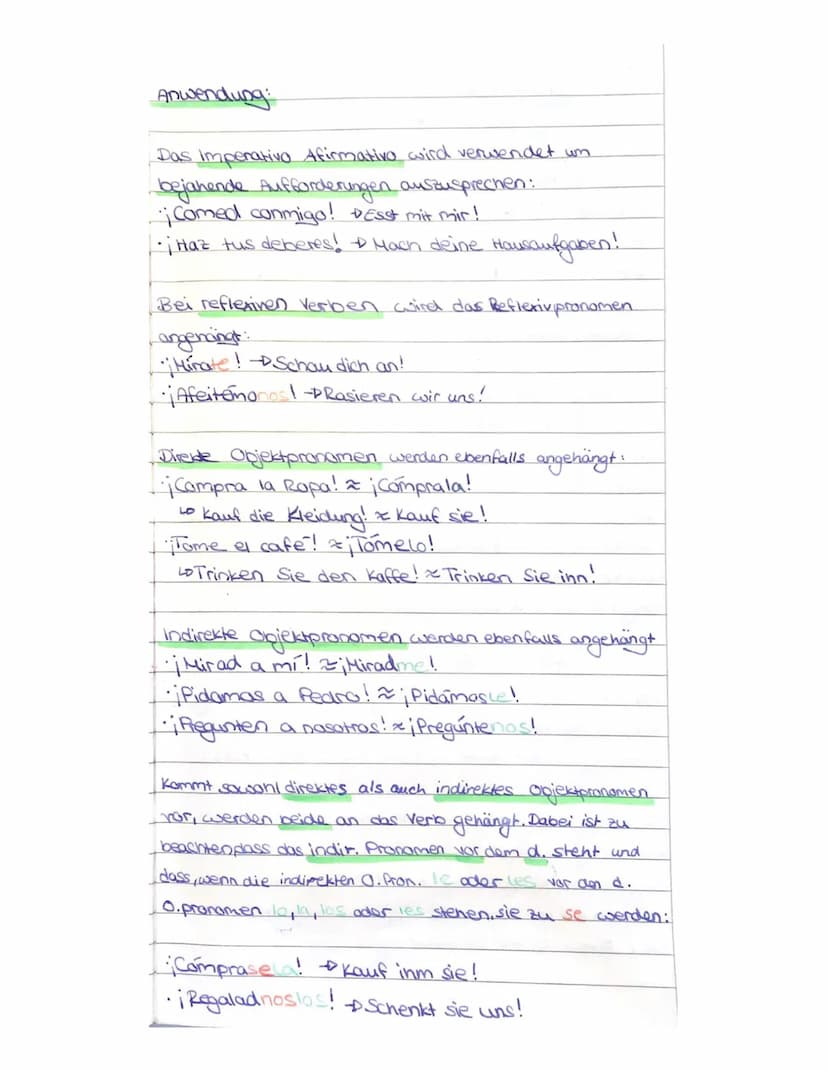 Anwendung:
Das Imperativo Afirmativo wird verwendet um
bejahende Aufforderungen auszusprechen:
· ¡Comed conmigo! → Esst mit mir!
· ¡Haz tus deberes! → Mach deine Hausaufgaben!
Bei reflexiven Verben wird das Reflexivpronomen
angehängt:
· ¡Mírate! → Schau dich an!
· ¡Afeitémonos! → Rasieren wir uns!
Direkte Objektpronomen werden ebenfalls angehängt:
· ¡Compra la Ropa! ≈ ¡Cómprala!
↳ Kauf die Kleidung! ≈ Kauf sie!
· ¡Tome el café! ≈ ¡Tómelo!
↳ Trinken Sie den Kaffe! ≈ Trinken Sie ihn!
Indirekte Objektpronomen werden ebenfalls angehängt
· ¡Mirad a mí! ≈ ¡Miradme!
· ¡Pidamos a Pedro! ≈ ¡Pidámosle!
· ¡Pregunten a nosotros! ≈ ¡Pregúntenos!
Kommt sowohl direktes als auch indirektes Objektpronomen
vor, werden beide an das Verb gehängt. Dabei ist zu
beachten, dass das indir. Pronomen vor dem d. steht und
dass, wenn die indirekten O. Pron. le oder les vor den d.
O. pronomen lo, la, los oder les stehen, sie zu se werden:
· ¡Cómprasela! → Kauf ihm sie!
· ¡Regaladnoslos! → Schenkt sie uns!